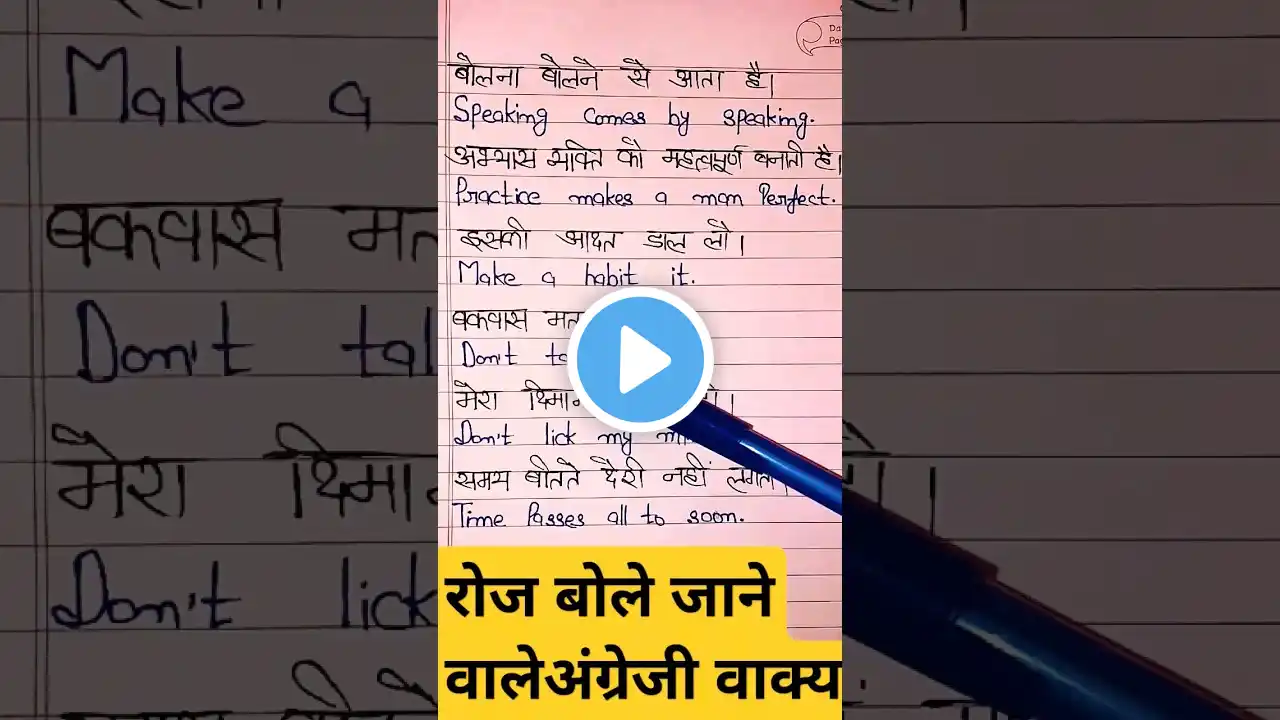 Make a
बकवास
Don't
मेरा
Don't lick
बोलना बोलने से आता है।
Speaking comes by speaking.
अभ्यास व्यक्ति को महत्वपूर्ण बनाती है।
Practice makes a man Perfect.
इसकी आदत डाल लो।
Make a habit it.
बकवास मत
Don't
मेरा
Don't lick my
समय बीतते देरी नहीं
Time Passes all to soon.
रोज बोले जाने
वालेअंग्रेजी वाक्य